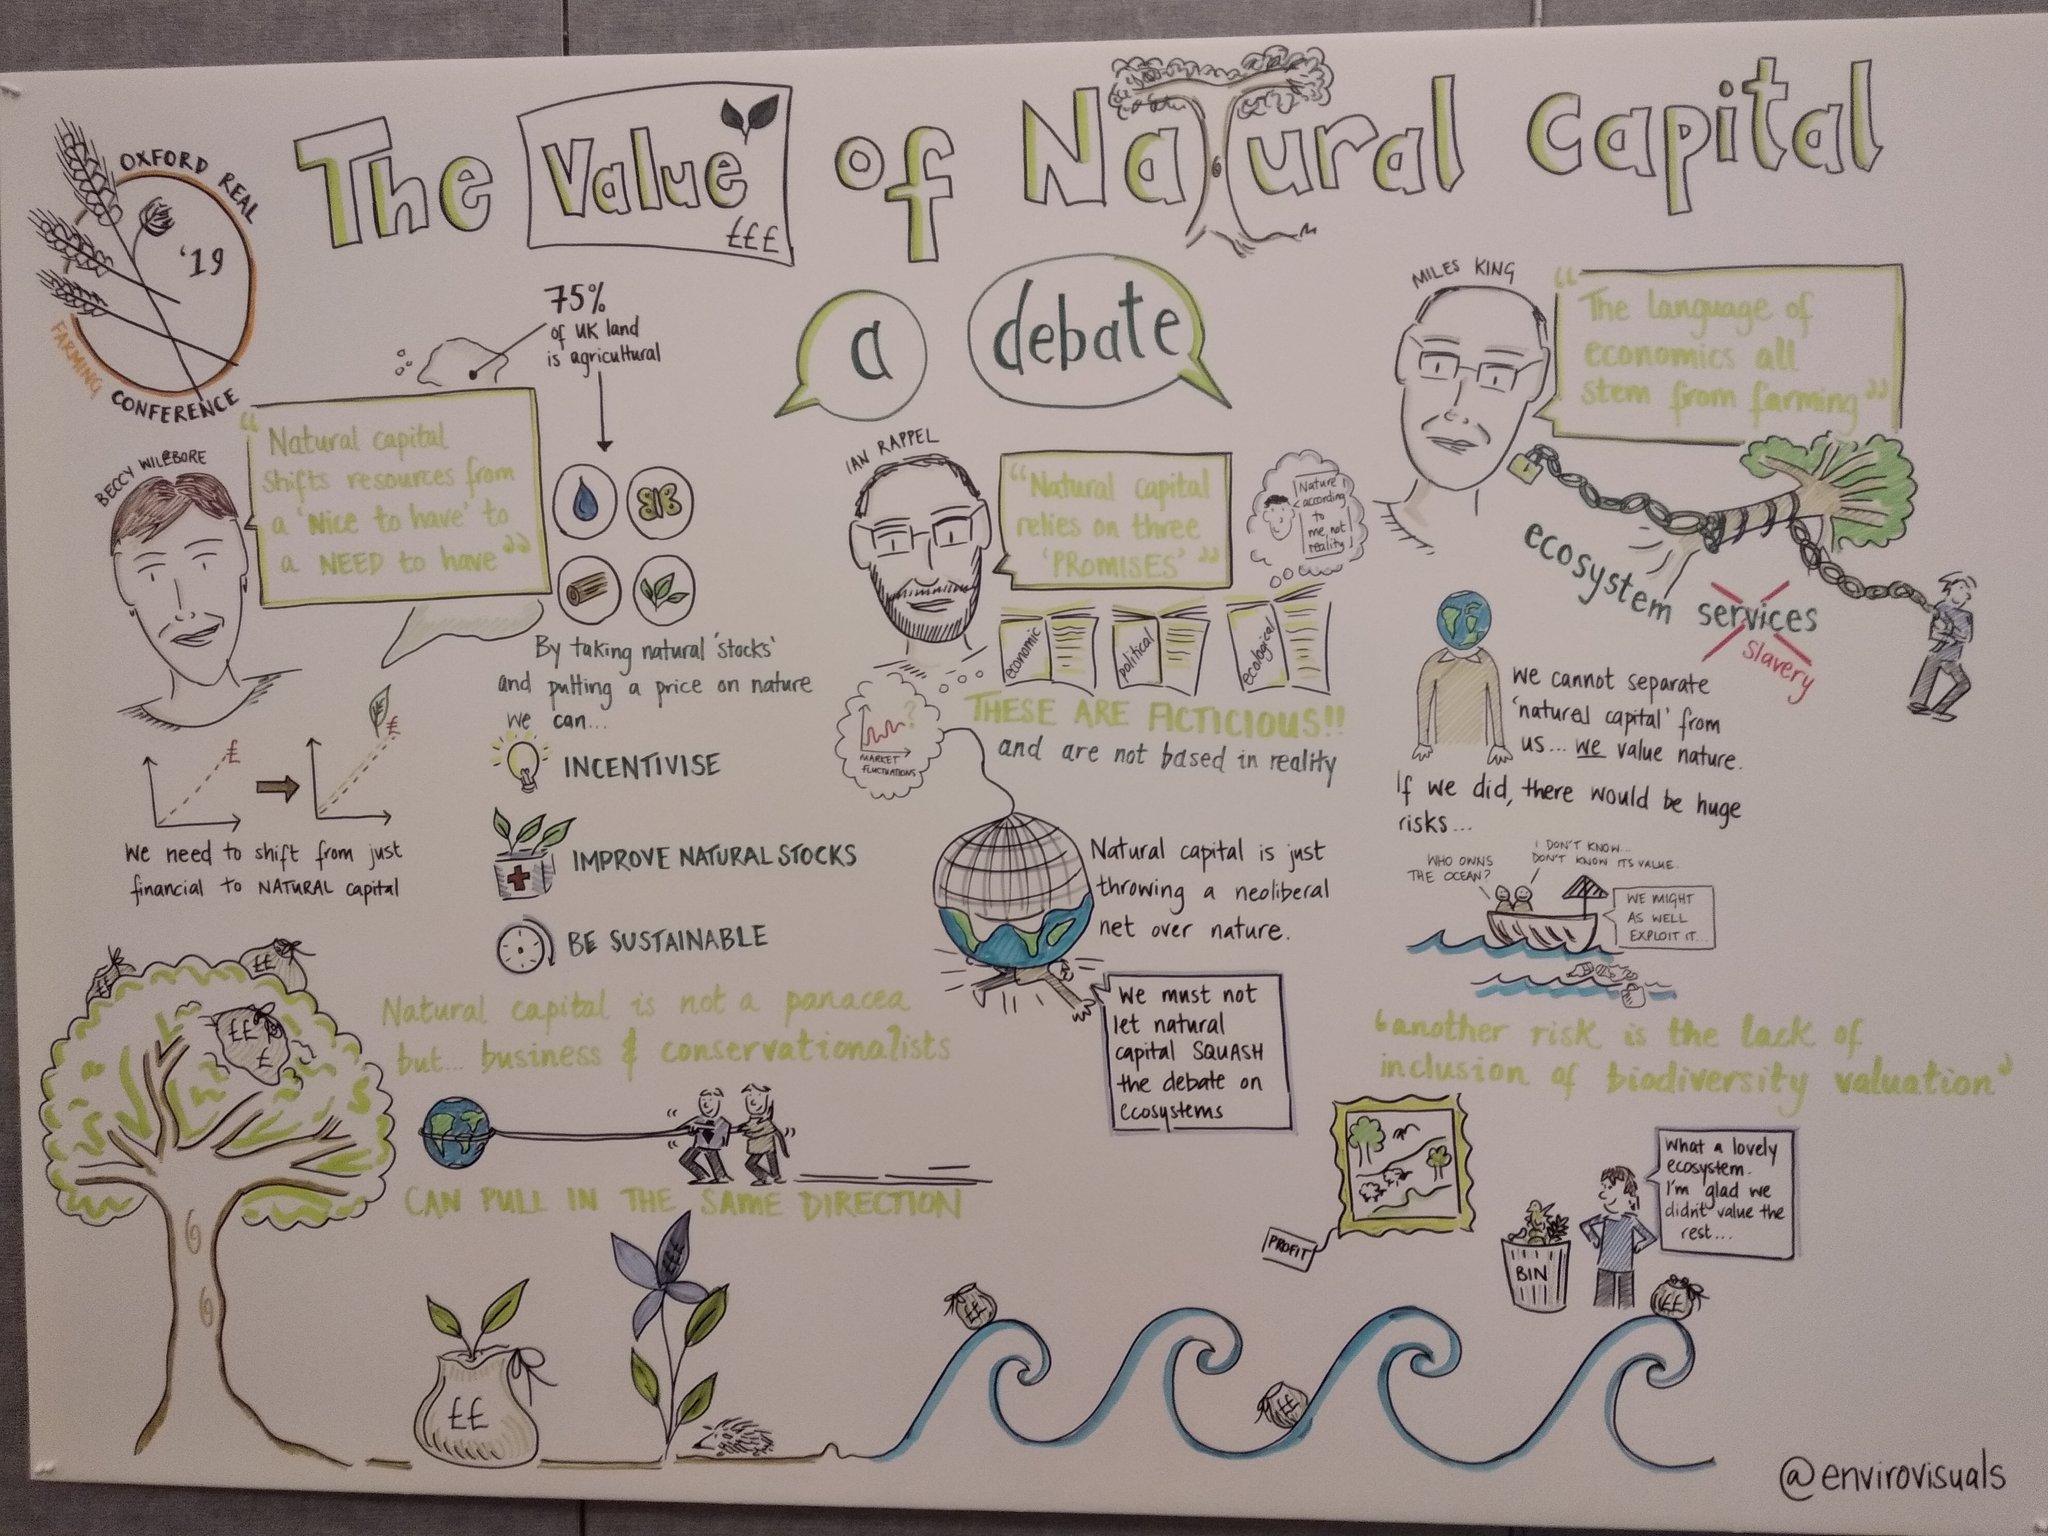 The Value of Natural Capital
£££
OXFORD REAL
'19
FARMING
CONFERENCE
a
debate
75%
of UK land
is agricultural
BECCY WILEBORE
"Natural capital
shifts resources from
a 'Nice to have' to
a NEED to have"
By taking natural 'stocks'
and putting a price on nature
we can...
INCENTIVISE
IMPROVE NATURAL STOCKS
BE SUSTAINABLE
£
£
We need to shift from just
financial to NATURAL capital
Natural capital is not a panacea
but... business & conservationalists
CAN PULL IN THE SAME DIRECTION
££
££
£
££
IAN RAPPEL
"Natural capital
relies on three
'PROMISES'"
Nature
according
to
me, not
reality
economic
political
ecological
THESE ARE FICTICIOUS!!
and are not based in reality
?
MARKET
FLUCTUATIONS
Natural capital is just
throwing a neoliberal
net over nature.
We must not
let natural
capital SQUASH
the debate on
ecosystems
MILES KING
"The language of
economics all
stem from farming"
ecosystem services
slavery
We cannot separate
'natural capital' from
us... we value nature.
If we did, there would be huge
risks...
WHO OWNS
THE OCEAN?
I DON'T KNOW...
DON'T KNOW ITS VALUE.
WE MIGHT
AS WELL
EXPLOIT IT...
"another risk is the lack of
inclusion of biodiversity valuation"
PROFIT
BIN
What a lovely
ecosystem.
I'm glad we
didn't value the
rest...
££
££
££
@envirovisuals